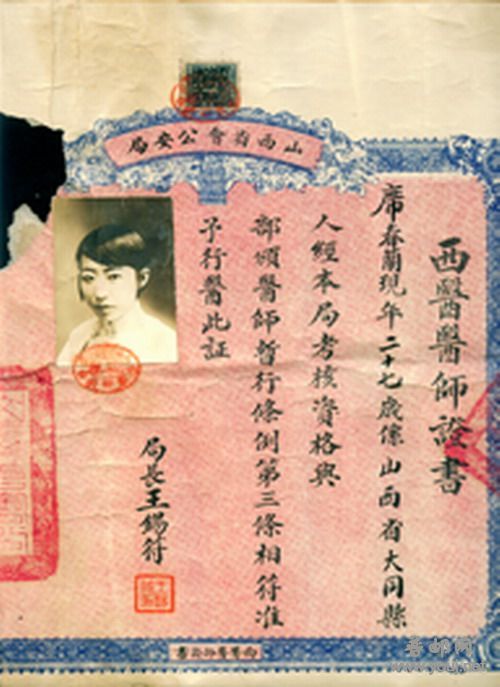 局安公會省西山
西醫醫師證書
席春蘭現年二十七歲係山西省大同縣
人經本局考核資格與
部頒醫師暫行條例第三條相符准
予行醫此証
局長王錫符
晋邮网
www.yoyjj.net